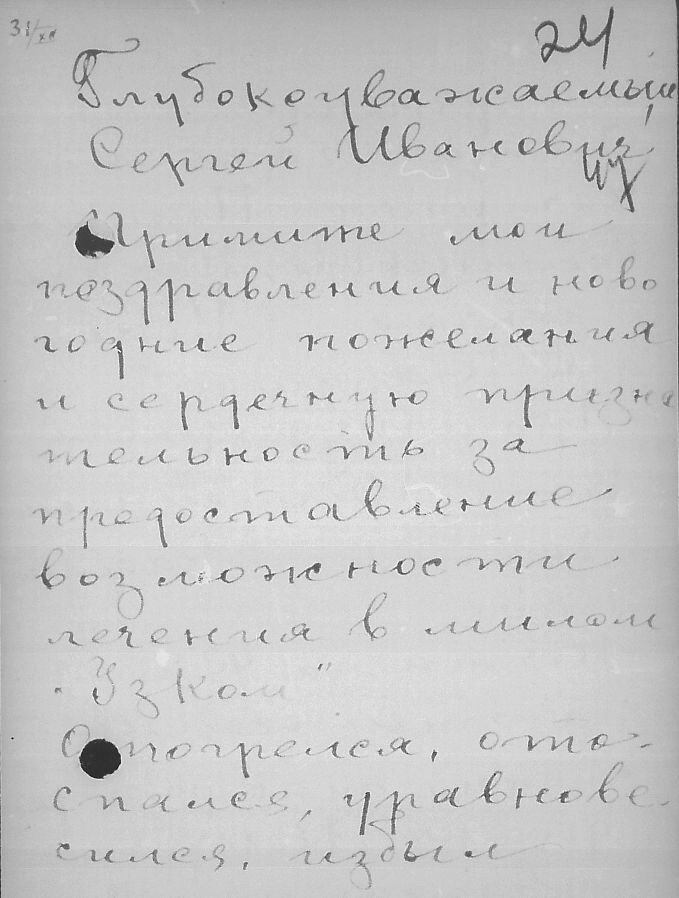 31/XII
24
Глубокоуважаемый
Сергей Иванович
Примите мои
поздравления и ново
годние пожелания
и сердечную призна
тельность за
предоставление
возможности
лечения в милом
"Узком"
Отогрелся, ото-
спался, уравнове-
сился, избыл